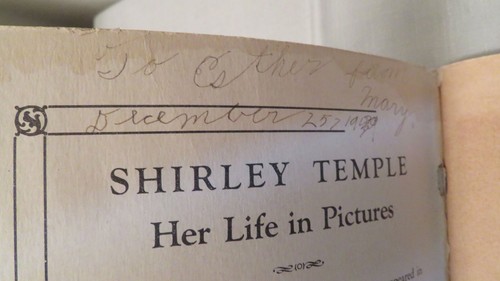 To Esther from
Mary
December 25, 19
SHIRLEY TEMPLE
Her Life in Pictures